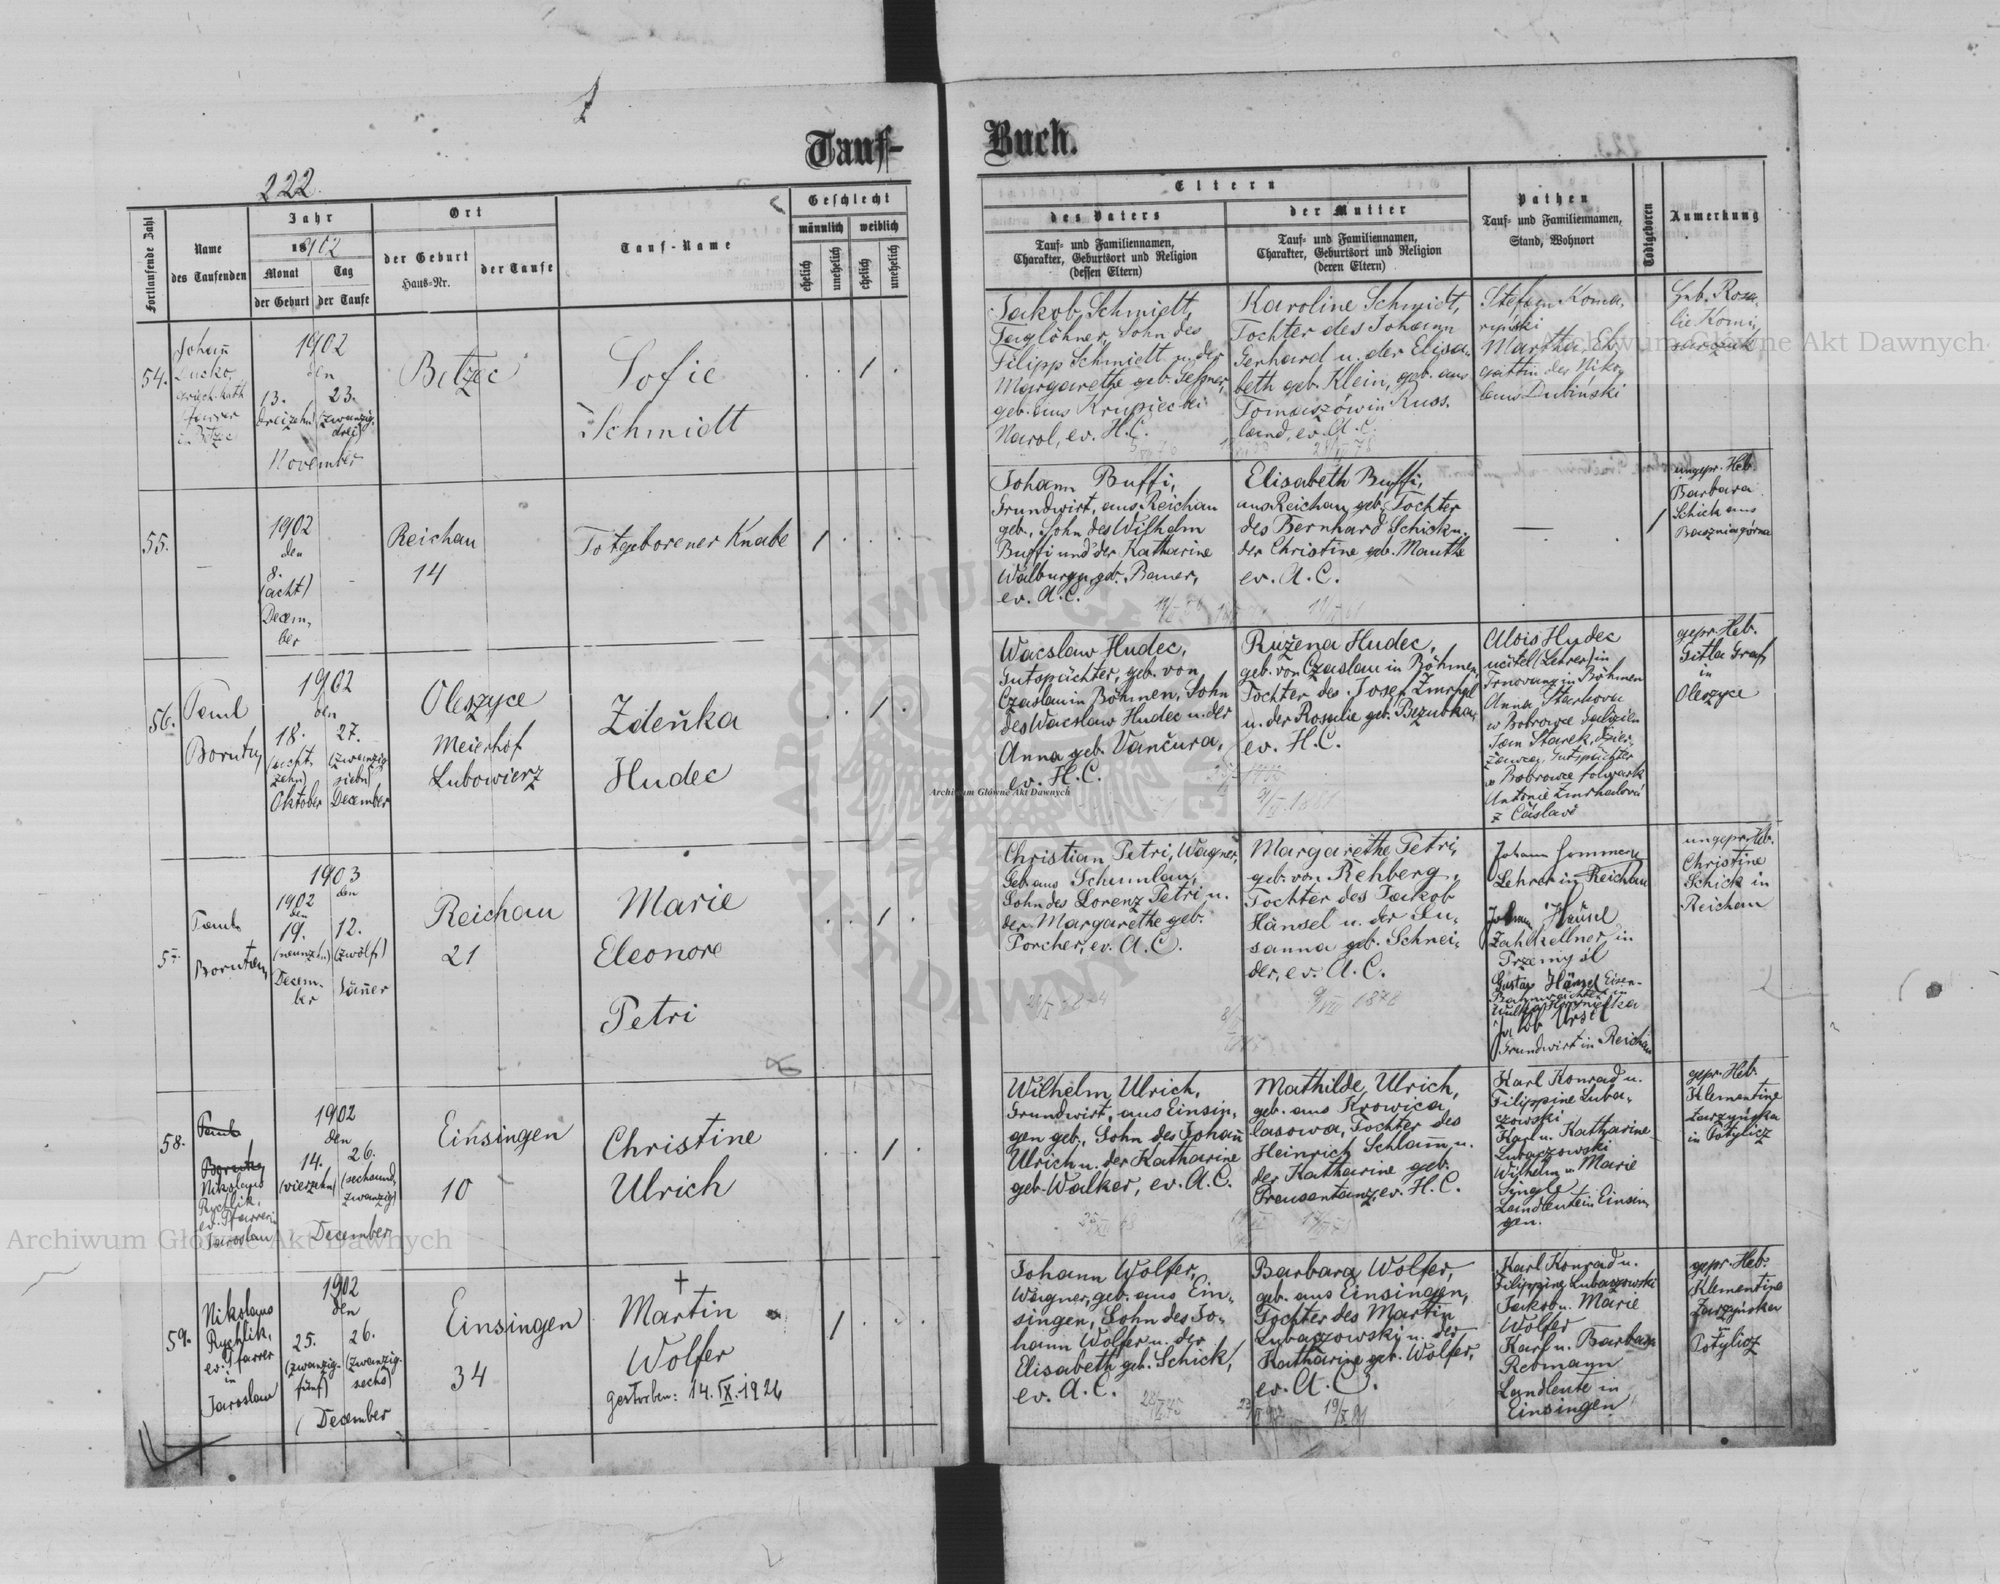 222.
Tauf-
Buch.
Fortlaufende Zahl
Name
des Taufenden
Jahr
1902
Monat
Tag
der Geburt
der Taufe
Ort
der Geburt
Haus-Nr.
der Taufe
Tauf-Name
Geschlecht
männlich
weiblich
ehelich
unehelich
ehelich
unehelich
Eltern
des Vaters
Tauf- und Familiennamen,
Charakter, Geburtsort und Religion
(dessen Eltern)
der Mutter
Tauf- und Familiennamen,
Charakter, Geburtsort und Religion
(deren Eltern)
Pathen
Tauf- und Familiennamen,
Stand, Wohnort
Todtgeboren
Anmerkung
54.
Johann
Lucko,
griech. kath
Pfarrer
in Bełzec
1902
den
13.
23.
(dreizehn)
(zwanzig
drei)
November
Bełzec
Sofie
Schmidt
1
Jakob Schmidt,
Taglöhner, Sohn des
Filipp Schmidt u. der
Margarethe geb. Geßner,
geb. aus Krupiec bei
Narol, ev. H.C.
Karoline Schmidt,
Tochter des Johann
Gerhard u. der Elisa-
beth geb. Klein, geb. aus
Tomaszów in Russ.
land, ev. A.C.
Stefan Koma-
ryński
Martha, Eh-
gattin des Niko-
laus Dubiński
Heb. Rosa-
lie
55.
1902
den
8.
(acht)
Decem-
ber
Reichau
14
Totgeborener Knabe
1
Johann Buffi,
Grundwirt, aus Reichau
geb., Sohn des Wilhelm
Buffi und der Katharine
Walburga geb. Bauer,
ev. A.C.
Elisabeth Buffi,
aus Reichau geb. Tochter
des Bernhard Schick u.
der Christine geb. Mauthe
ev. A.C.
1
ungepr. Heb.
Barbara
Schick aus
Baszniagórna
56.
Paul
Borntey
1902
den
18.
27.
(acht-
zehn)
(zwanzig
sieben)
Oktober
December
Oleszyce
Meierhof
Lubowierz
Zdeňka
Hudec
1
Wacslaw Hudec,
Gutspächter, geb. von
Czaslau in Böhmen, Sohn
des Wacslaw Hudec u. der
Anna geb. Vančura,
ev. H.C.
Ružena Hudec,
geb. von Czaslau in Böhmen,
Tochter des Josef Zmrhal
u. der Rosalie geb. Bezubka,
ev. H.C.
Alois Hudec
učitel (Lehrer) in
Trnovany in Böhmen
Anna Starkova
w Bobrowce Galizien
Jan Starek, dzier-
żawca, Gutspächter
w Bobrowce folwark
Antonie Zmrhalová
z Čáslavě
gepr. Heb.
Gitla Graf
in
Oleszyce
57.
1903
1902
den
den
19.
12.
(neunzehn)
(zwölf)
Decem-
ber
Jänner
Reichau
21
Marie
Eleonore
Petri
1
Christian Petri, Wagner,
Geb. aus Schumlau,
Sohn des Lorenz Petri u.
der Margarethe geb.
Porcher, ev. A.C.
Margarethe Petri,
geb. von Rehberg,
Tochter des Jakob
Hänsel u. der Su-
sanna geb. Schnei-
der, ev. A.C.
Johann
Lehrer in Reichau
Johann Hänsel
Zahlkellner in
Przemyśl
Gustav Hänsel Eisen-
Bahnwächter in
Jakob Ursel
Grundwirt in Reichau
ungepr. Heb.
Christine
Schick in
Reichau
58.
Nikolaus
Rychlik,
ev. Pfarrer in
Jaroslau
1902
den
14.
26.
(vierzehn)
(sechsund
zwanzig)
December
Einsingen
10
Christine
Ulrich
1
Wilhelm Ulrich,
Grundwirt, aus Einsin-
gen geb., Sohn des Johann
Ulrich u. der Katharine
geb. Walker, ev. A.C.
Mathilde Ulrich,
geb. aus Krowica
lasowa, Tochter des
Heinrich Schlamm u.
der Katharine geb.
Preusentanz, ev. H.C.
Karl Konrad u.
Filippine Luba-
czowski
Karl u. Katharine
Lubaczowski
Wilhelm u. Marie
Syngle
Landleute in Einsin-
gen.
gepr. Heb.
Klementine
Zarzyńska
in Potylicz
59.
Nikolaus
Rychlik,
ev. Pfarrer
in
Jaroslau
1902
den
25.
26.
(zwanzig-
fünf)
(zwanzig-
sechs)
December
Einsingen
34
†
Martin
Wolfer
gestorben: 14.IX.1926
1
Johann Wolfer,
Wagner, geb. aus Ein-
singen, Sohn des Jo-
hann Wolfer u. der
Elisabeth geb. Schick,
ev. A.C.
Barbara Wolfer,
geb. aus Einsingen,
Tochter des Martin
Lubaczowski u. der
Katharine geb. Wolfer,
ev. A.C.
Karl Konrad u.
Filippine Lubaczowski
Jakob u. Marie
Wolfer
Karl u. Barbara
Rebmann
Landleute in
Einsingen
gepr. Heb.
Klementine
Zarzyńska
in
Potylicz
Archiwum Główne Akt Dawnych
Archiwum Główne Akt Dawnych
Archiwum Główne Akt Dawnych